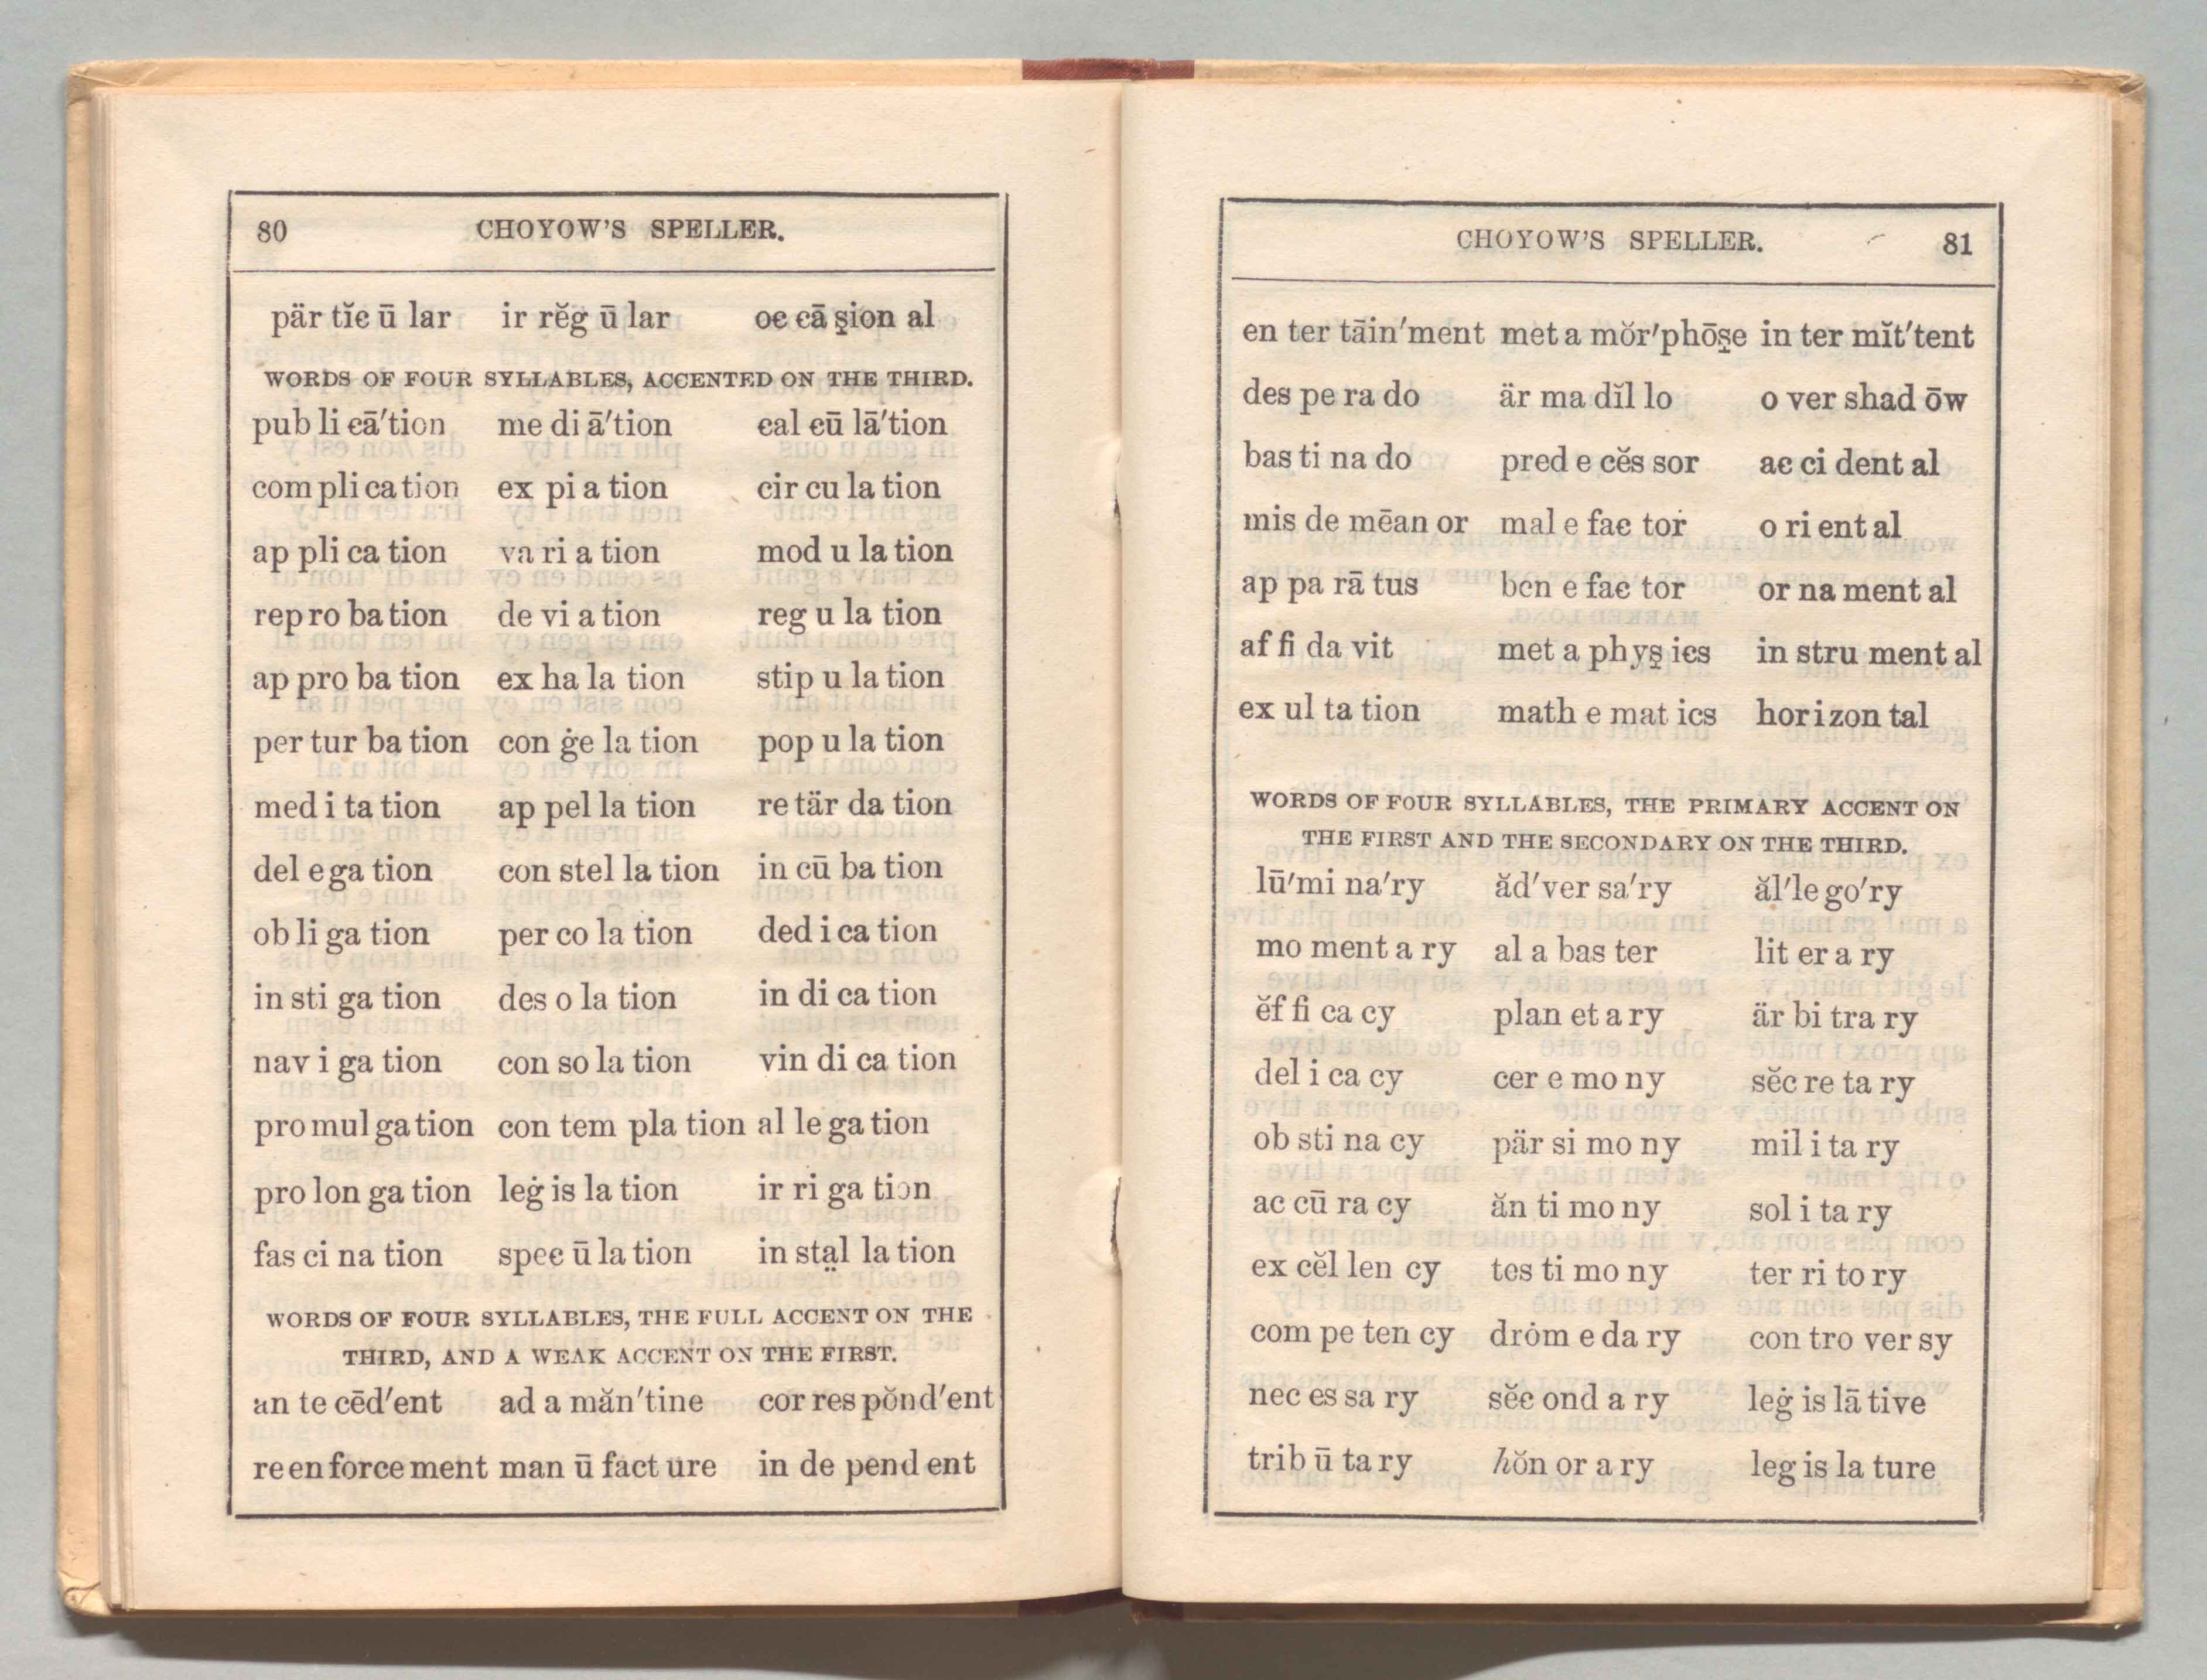 80 CHOYOW'S SPELLER.
pär tĭc ū lar ir rĕg ū lar oc cā s̱ion al
WORDS OF FOUR SYLLABLES, ACCENTED ON THE THIRD.
pub li cā'tion me di ā'tion cal cū lā'tion
com pli ca tion ex pi a tion cir cu la tion
ap pli ca tion va ri a tion mod u la tion
rep ro ba tion de vi a tion reg u la tion
ap pro ba tion ex ha la tion stip u la tion
per tur ba tion con ġe la tion pop u la tion
med i ta tion ap pel la tion re tär da tion
del e ga tion con stel la tion in cū ba tion
ob li ga tion per co la tion ded i ca tion
in sti ga tion des o la tion in di ca tion
nav i ga tion con so la tion vin di ca tion
pro mul ga tion con tem pla tion al le ga tion
pro lon ga tion leġ is la tion ir ri ga tion
fas ci na tion spec ū la tion in sta̤l la tion
WORDS OF FOUR SYLLABLES, THE FULL ACCENT ON THE
THIRD, AND A WEAK ACCENT ON THE FIRST.
an te cēd'ent ad a măn'tine cor res pŏnd'ent
re en force ment man ū fact ure in de pend ent
CHOYOW'S SPELLER. 81
en ter tāin'ment met a mŏr'phōs̱e in ter mĭt'tent
des pe ra do är ma dĭl lo o ver shad ōw
bas ti na do pred e cĕs sor ac ci dent al
mis de mēan or mal e fac tor o ri ent al
ap pa rā tus ben e fac tor or na ment al
af fi da vit met a phys̱ ics in stru ment al
ex ul ta tion math e mat ics hor i zon tal
WORDS OF FOUR SYLLABLES, THE PRIMARY ACCENT ON
THE FIRST AND THE SECONDARY ON THE THIRD.
lū'mi na'ry ăd'ver sa'ry ăl'le go'ry
mo ment a ry al a bas ter lit er a ry
ĕf fi ca cy plan et a ry är bi tra ry
del i ca cy cer e mo ny sĕc re ta ry
ob sti na cy pär si mo ny mil i ta ry
ac cū ra cy ăn ti mo ny sol i ta ry
ex cĕl len cy tes ti mo ny ter ri to ry
com pe ten cy drȯm e da ry con tro ver sy
nec es sa ry sĕc ond a ry leġ is lā tive
trib ū ta ry hŏn or a ry leg is la ture